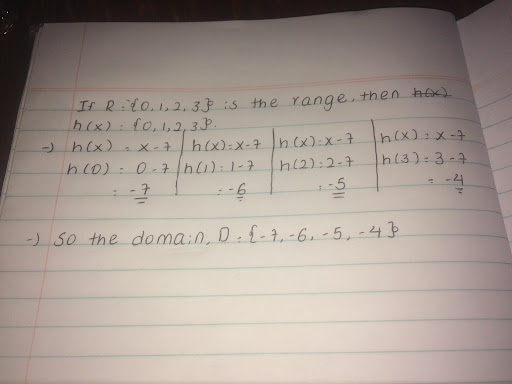 If R:{0,1,2,3} is the range, then h(x)
h(x) : {0,1,2,3}.
-) h(x) = x - 7 | h(x):x-7 | h(x):x-7 | h(x) = x - 7
h(0) = 0 - 7 | h(1):1-7 | h(2):2-7 | h(3) = 3 - 7
= -7 | : -6 | : -5 | = -4
-) So the domain, D = {-7, -6, -5, -4}